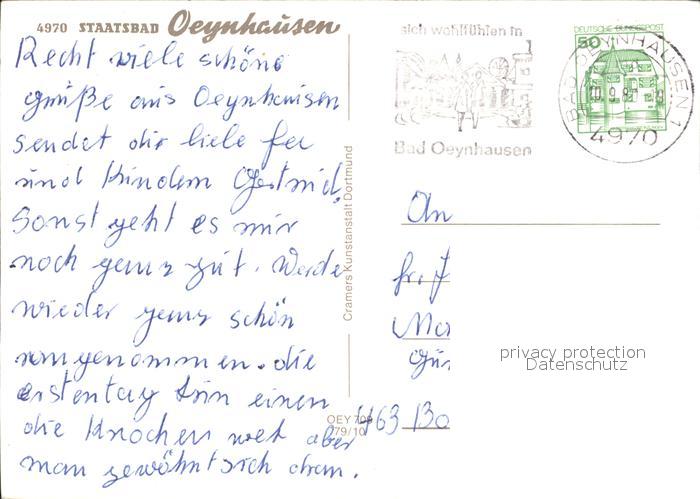 4970 STAATSBAD Oeynhausen
Recht viele schöne
grüße aus Oeynhausen
sendet dir liele
und Kindern
Sonst geht es mir
noch ganz gut. Werde
wieder ganz schön
rangenommen. die
erstentag tun einen
die Knochen weh aber
man gewöhnt sich dran.
Cramers Kunstanstalt Dortmund
OEY
79/10
sich wohlfühlen in
Bad Oeynhausen
DEUTSCHE BUNDESPOST
50
BAD OEYNHAUSEN 1
4970
An
fr. F
463 Bo
privacy protection
Datenschutz